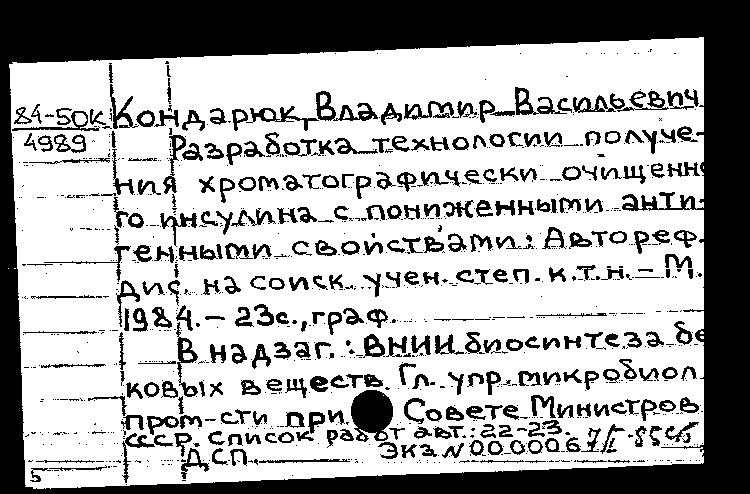 84-50К Кондарюк, Владимир Васильевич
4989 Разработка технологии получе-
ния хроматографически очищенно
го инсулина с пониженными анти-
генными свойствами: Автореф.
дис. на соиск. учен. степ. к.т.н. – М.
1984. – 23с., граф.
В надзаг.: ВНИИ биосинтеза бе
ковых веществ. Гл. упр. микробиол
пром-сти при Совете Министров
СССР. Список работ авт.: 22-23.
ДСП. Экз N 0000067
5